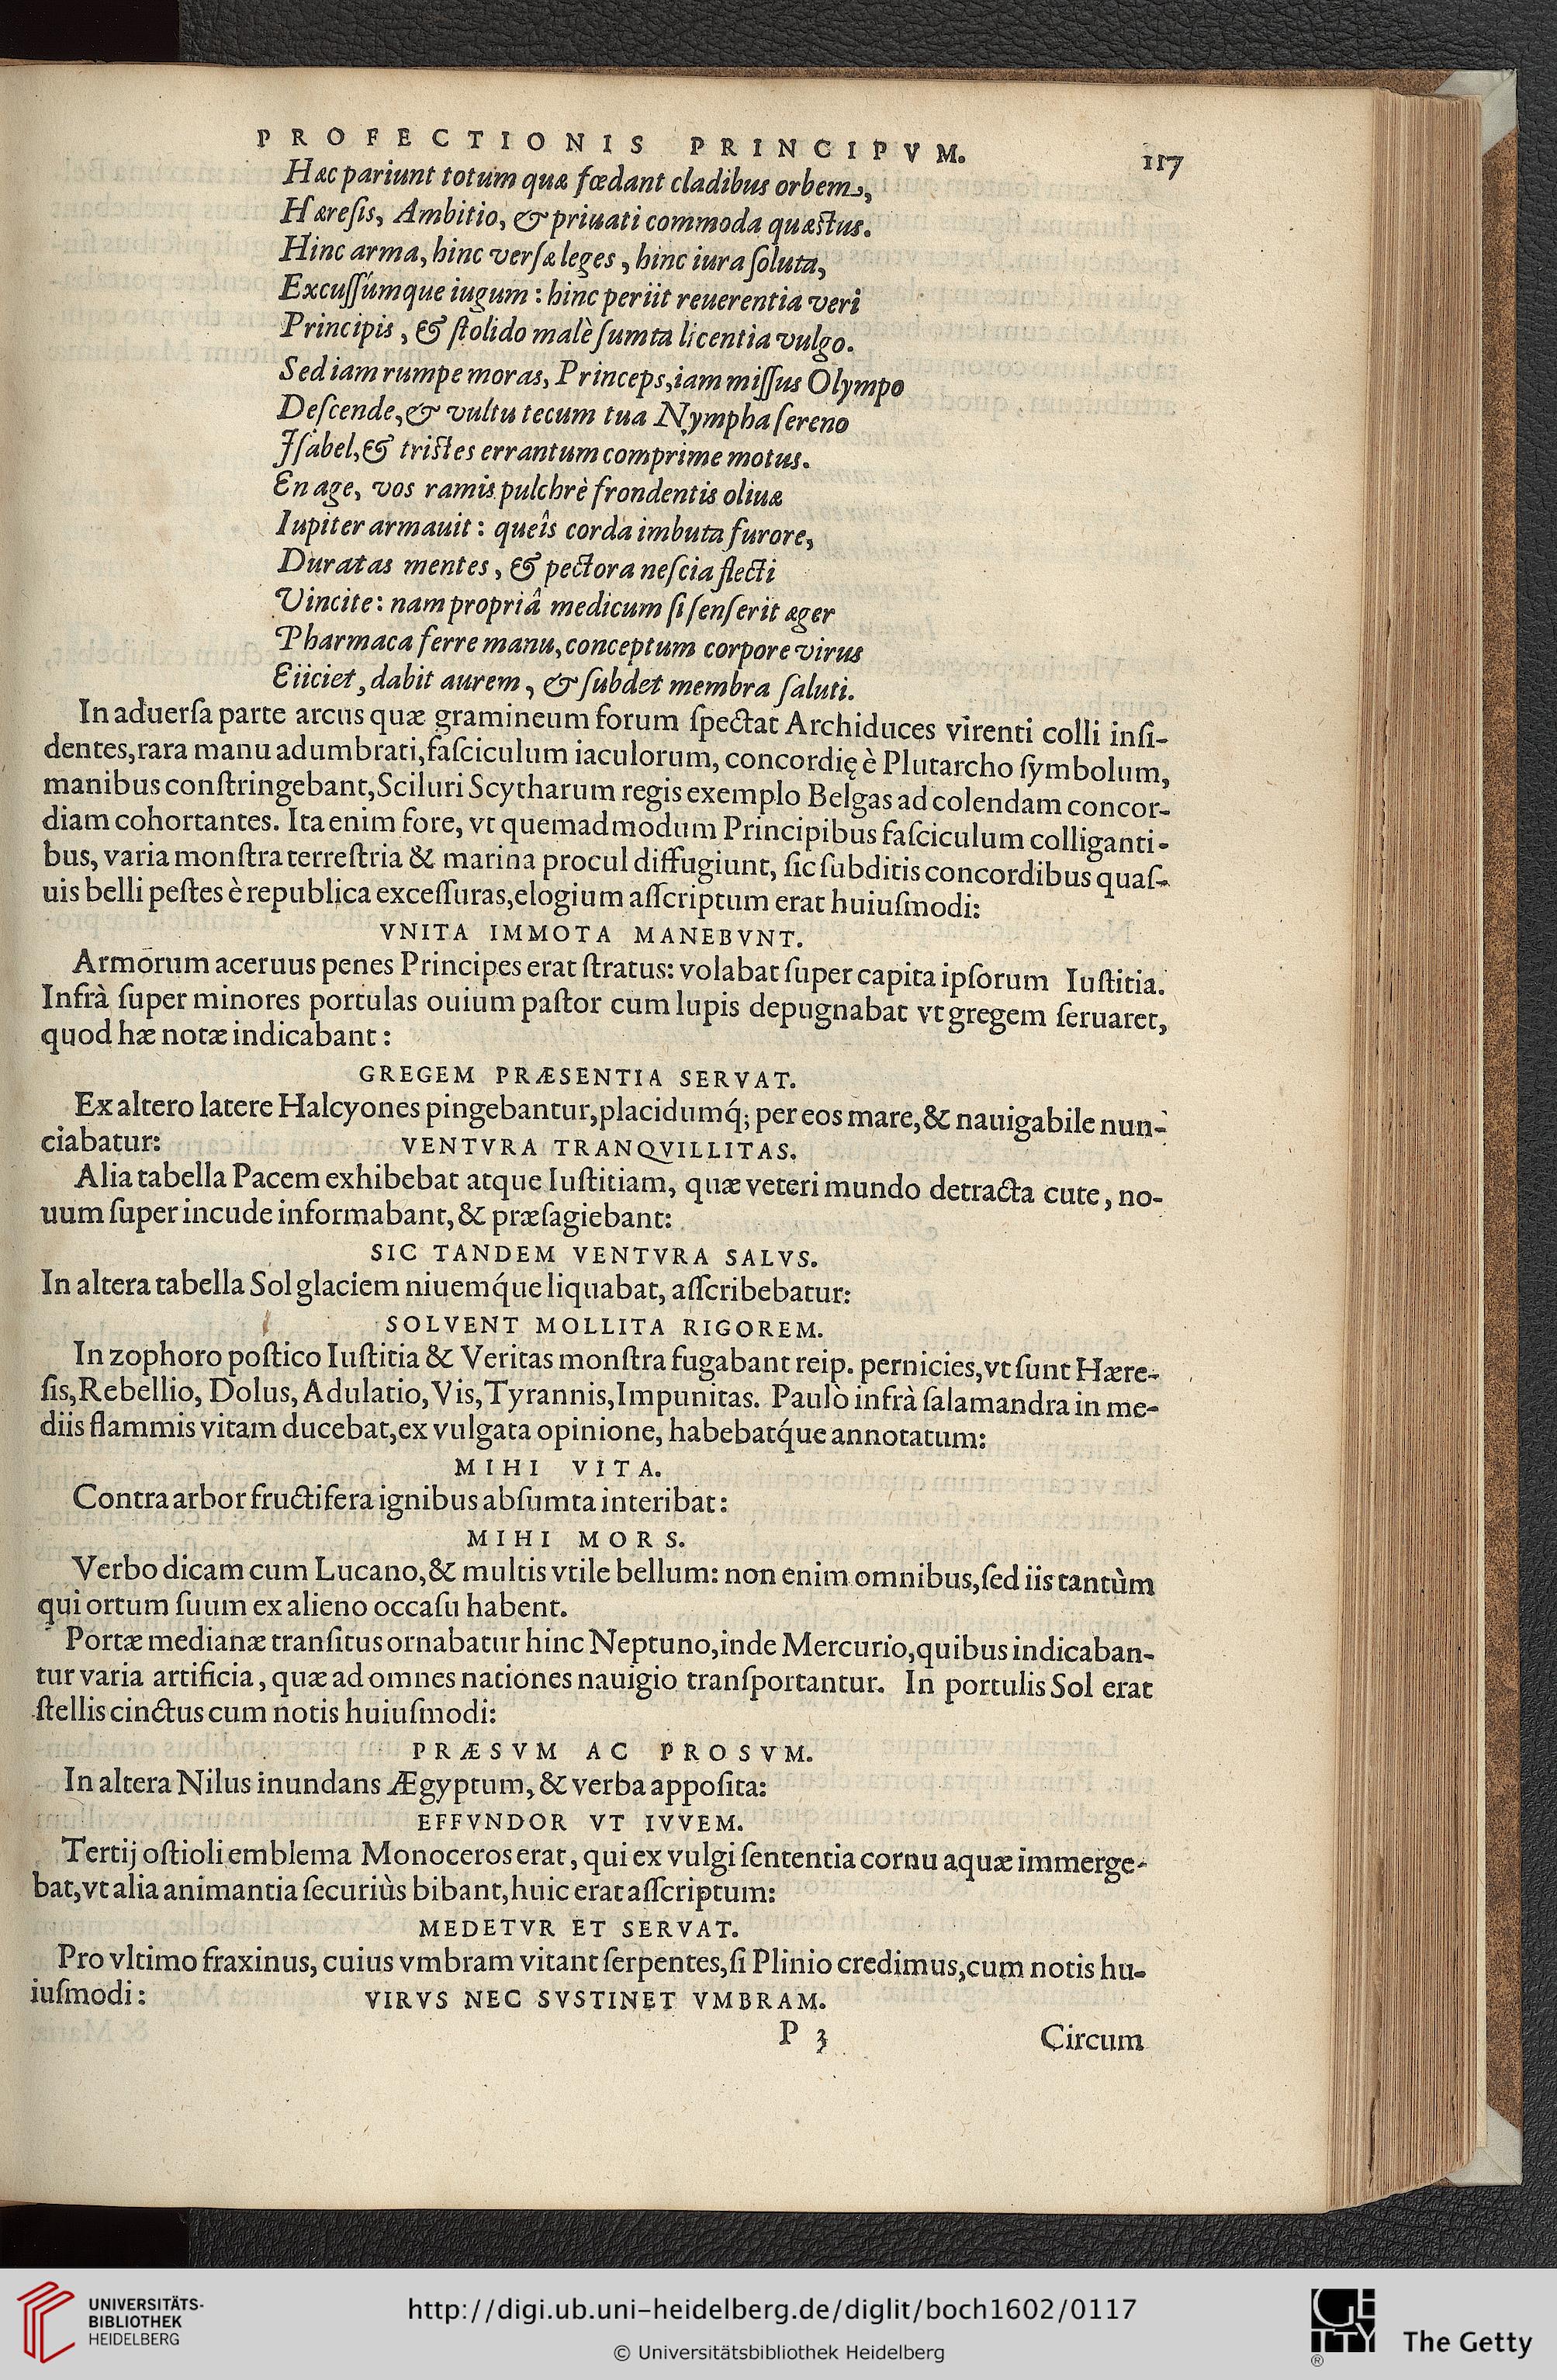 PROFECTIONIS PRINCIPVM. 117
Hæc pariunt totum quæ fœdant cladibus orbem,
Hæresis, Ambitio, & priuati commoda quæstus.
Hinc arma, hinc versæ leges, hinc iura soluta,
Excussúmque iugum: hinc periit reuerentia veri
Principis, & stolido malè sumta licentia vulgo.
Sed iam rumpe moras, Princeps, iam missus Olympo
Descende, & vultu tecum tua Nympha sereno
Isabel, & tristes errantum comprime motus.
En age, vos ramis pulchrè frondentis oliuæ
Iupiter armauit: queîs corda imbuta furore,
Duratas mentes, & pectora nescia flecti
Vincite: nam propriâ medicum si senserit æger
Pharmaca ferre manu, conceptum corpore virus
Eiiciet, dabit aurem, & subdet membra saluti.
In aduersa parte arcus quæ gramineum forum spectat Archiduces virenti colli insi-
dentes, rara manu adumbrati, fasciculum iaculorum, concordię è Plutarcho symbolum,
manibus constringebant, Sciluri Scytharum regis exemplo Belgas ad colendam concor-
diam cohortantes. Ita enim fore, vt quemadmodum Principibus fasciculum colliganti-
bus, varia monstra terrestria & marina procul diffugiunt, sic subditis concordibus quas-
uis belli pestes è republica excessuras, elogium asscriptum erat huiusmodi:
VNITA IMMOTA MANEBVNT.
Armorum aceruus penes Principes erat stratus: volabat super capita ipsorum Iustitia.
Infrà super minores portulas ouium pastor cum lupis depugnabat vt gregem seruaret,
quod hæ notæ indicabant:
GREGEM PRÆSENTIA SERVAT.
Ex altero latere Halcyones pingebantur, placidumq́; per eos mare, & nauigabile nun-
ciabatur: VENTVRA TRANQVILLITAS.
Alia tabella Pacem exhibebat atque Iustitiam, quæ veteri mundo detracta cute, no-
uum super incude informabant, & præsagiebant:
SIC TANDEM VENTVRA SALVS.
In altera tabella Sol glaciem niuemq́ue liquabat, asscribebatur:
SOLVENT MOLLITA RIGOREM.
In zophoro postico Iustitia & Veritas monstra fugabant reip. pernicies, vt sunt Hære-
sis, Rebellio, Dolus, Adulatio, Vis, Tyrannis, Impunitas. Paulò infrà salamandra in me-
diis flammis vitam ducebat, ex vulgata opinione, habebatq́ue annotatum:
MIHI VITA.
Contra arbor fructifera ignibus absumta interibat:
MIHI MORS.
Verbo dicam cum Lucano, & multis vtile bellum: non enim omnibus, sed iis tantùm
qui ortum suum ex alieno occasu habent.
Portæ medianæ transitus ornabatur hinc Neptuno, inde Mercurio, quibus indicaban-
tur varia artificia, quæ ad omnes nationes nauigio transportantur. In portulis Sol erat
stellis cinctus cum notis huiusmodi:
PRÆSVM AC PROSVM.
In altera Nilus inundans Ægyptum, & verba apposita:
EFFVNDOR VT IVVEM.
Tertij ostioli emblema Monoceros erat, qui ex vulgi sententia cornu aquæ immerge-
bat, vt alia animantia securiùs bibant, huic erat asscriptum:
MEDETVR ET SERVAT.
Pro vltimo fraxinus, cuius vmbram vitant serpentes, si Plinio credimus, cum notis hu-
iusmodi: VIRVS NEC SVSTINET VMBRAM.
P 3 Circum
UNIVERSITÄTS-
BIBLIOTHEK
HEIDELBERG
http://digi.ub.uni-heidelberg.de/diglit/boch1602/0117
© Universitätsbibliothek Heidelberg
GETTY
®
The Getty